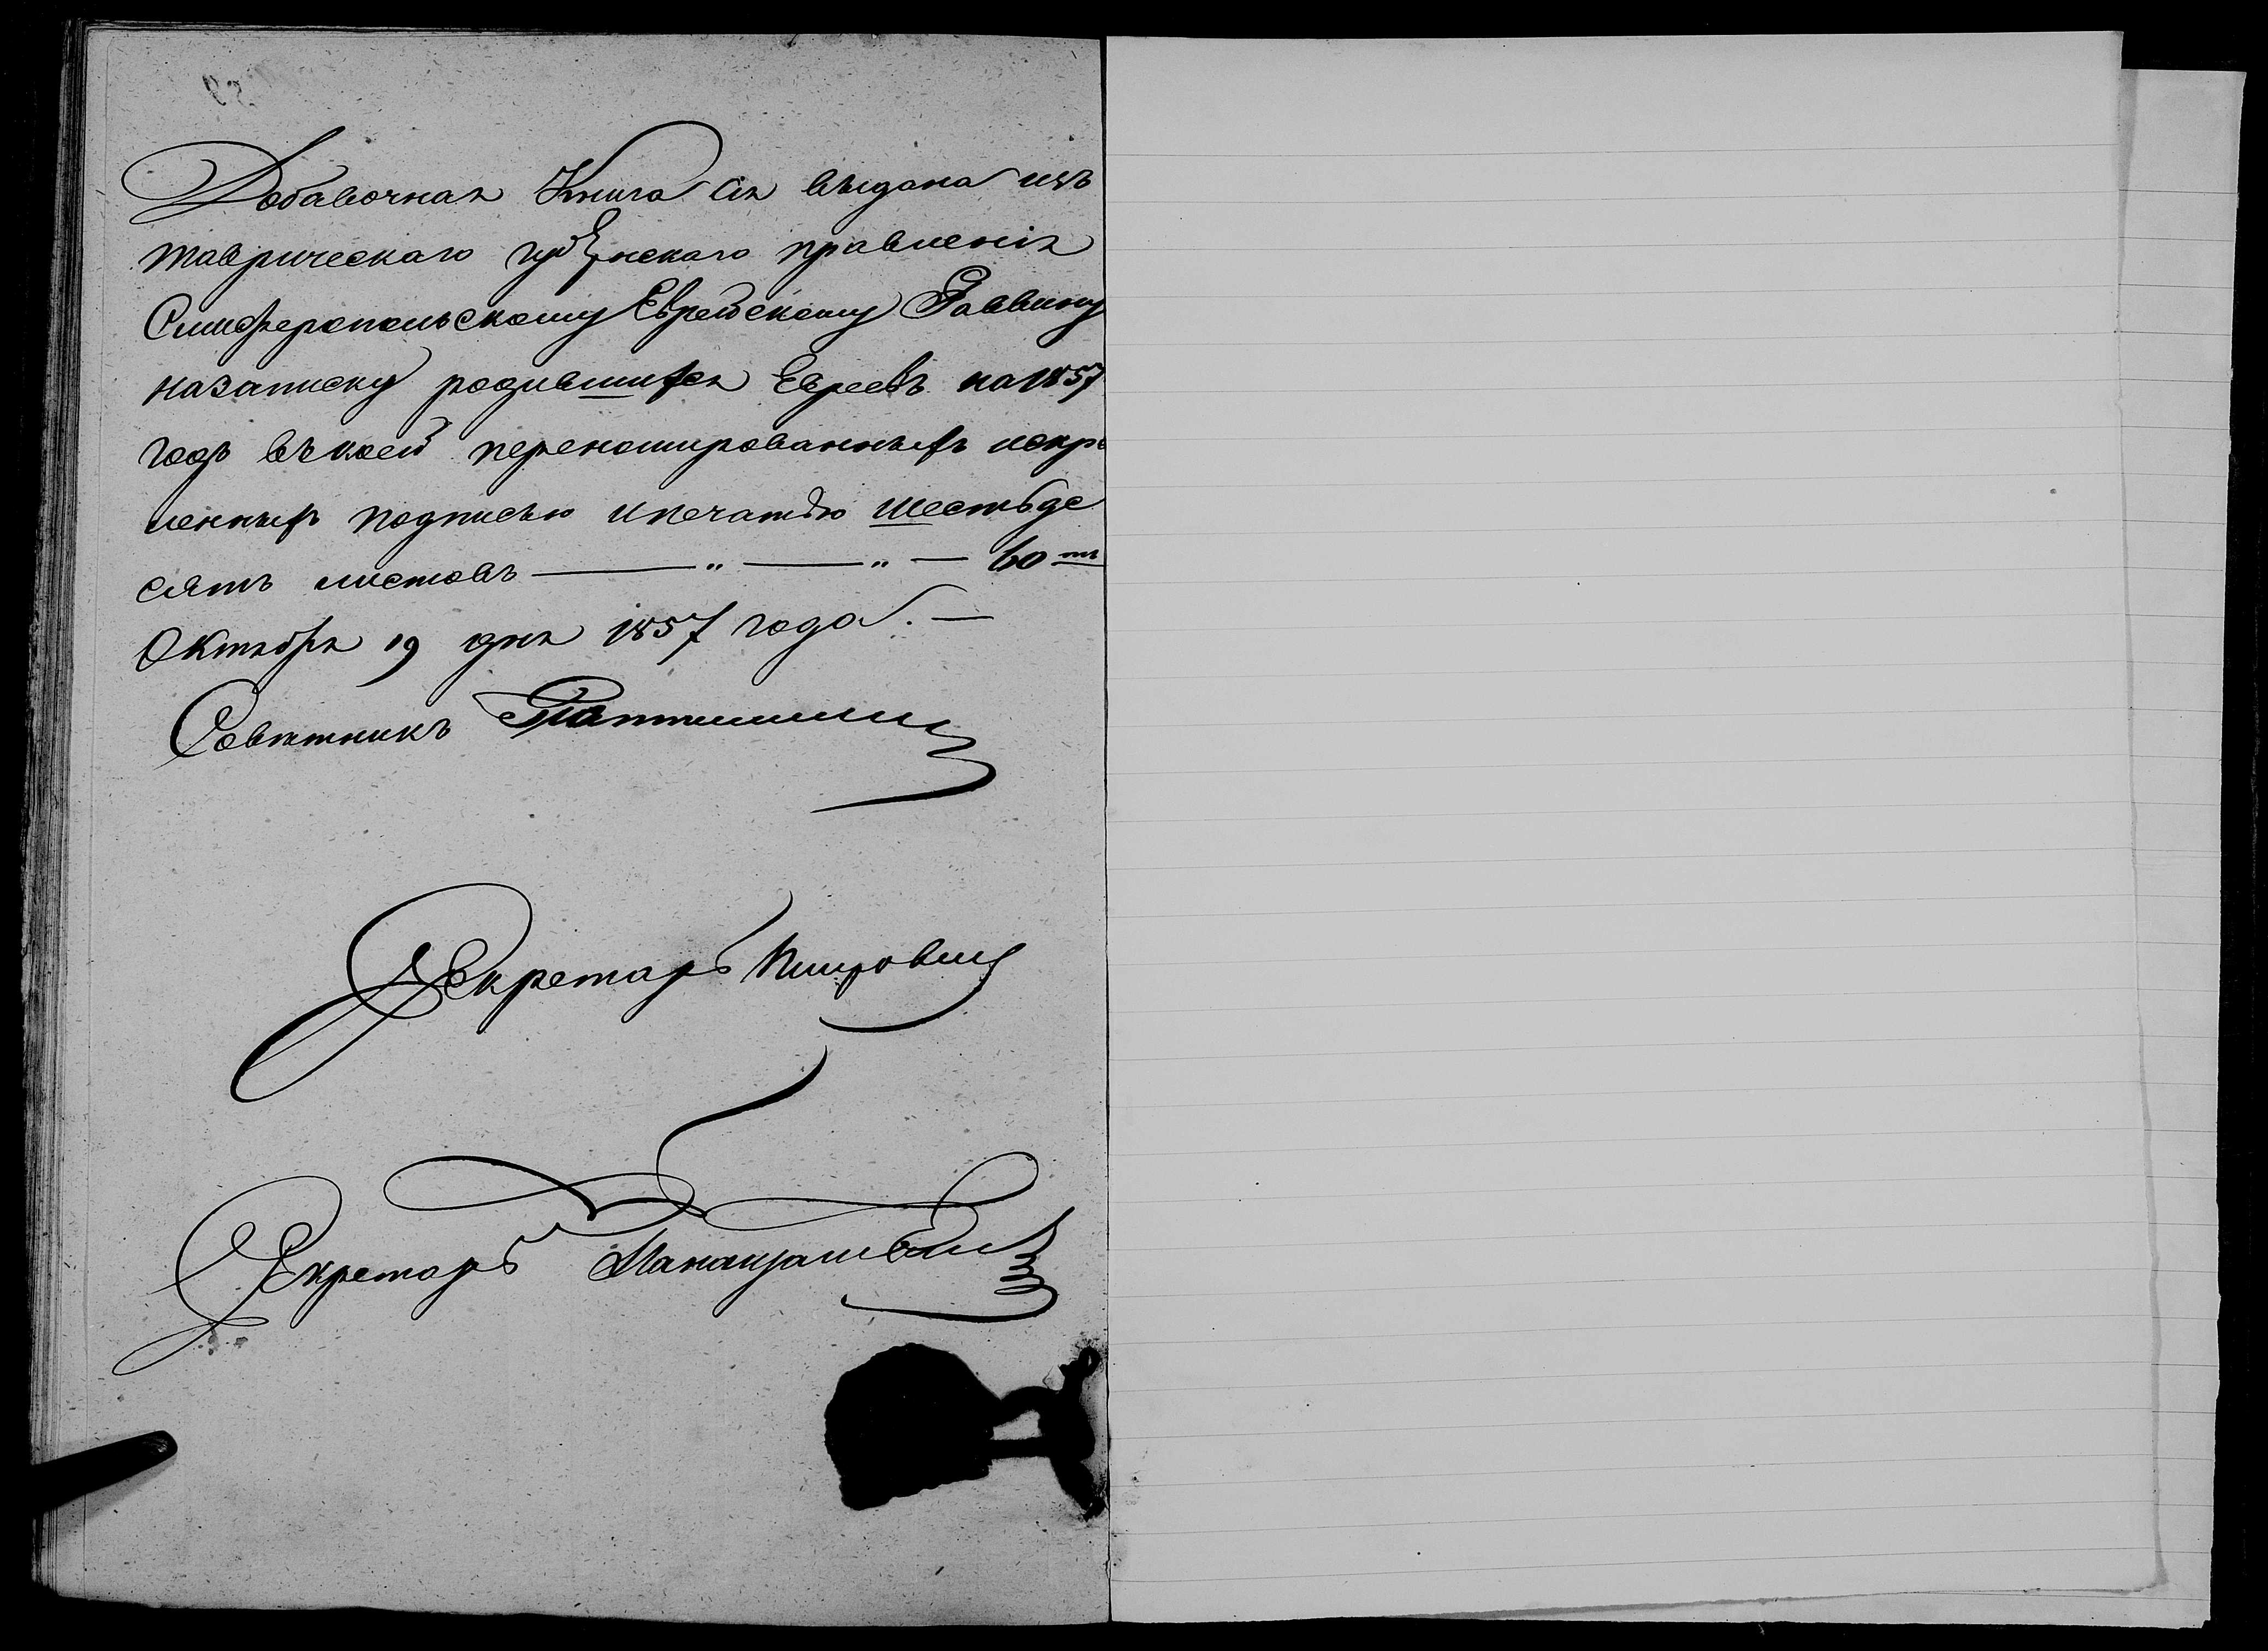 Добавочная Книга сія выдана изъ
таврическаго губернскаго правленія
Симферопольскому Еврейскому Раввину
назаписку родившихся Евреевъ на 1857
годъ въ коей переномированныхъ искрѣ
пленныхъ подписью ипечатью шестьде
сятъ листовъ — „ — „ — 60 ть
Октября 19 дня 1857 года. —
Совѣтникъ
Секретарь
Секретарь